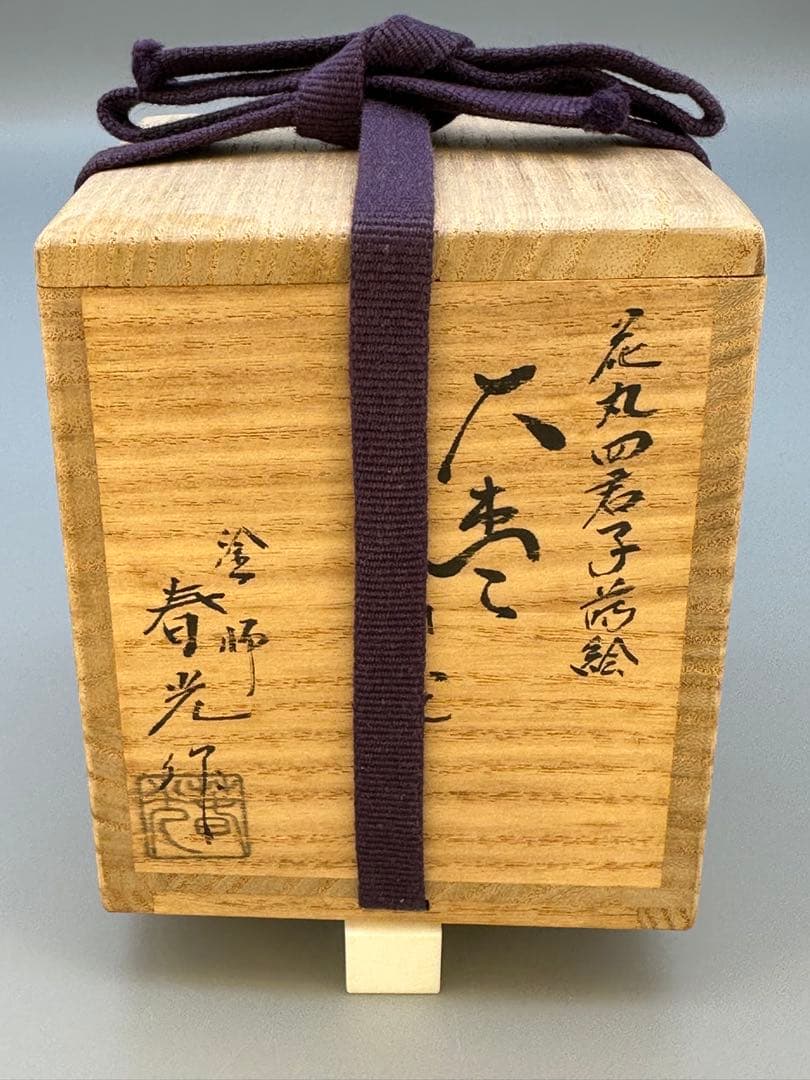 花丸四君子蒔絵
大棗
塗師
春光作
春光